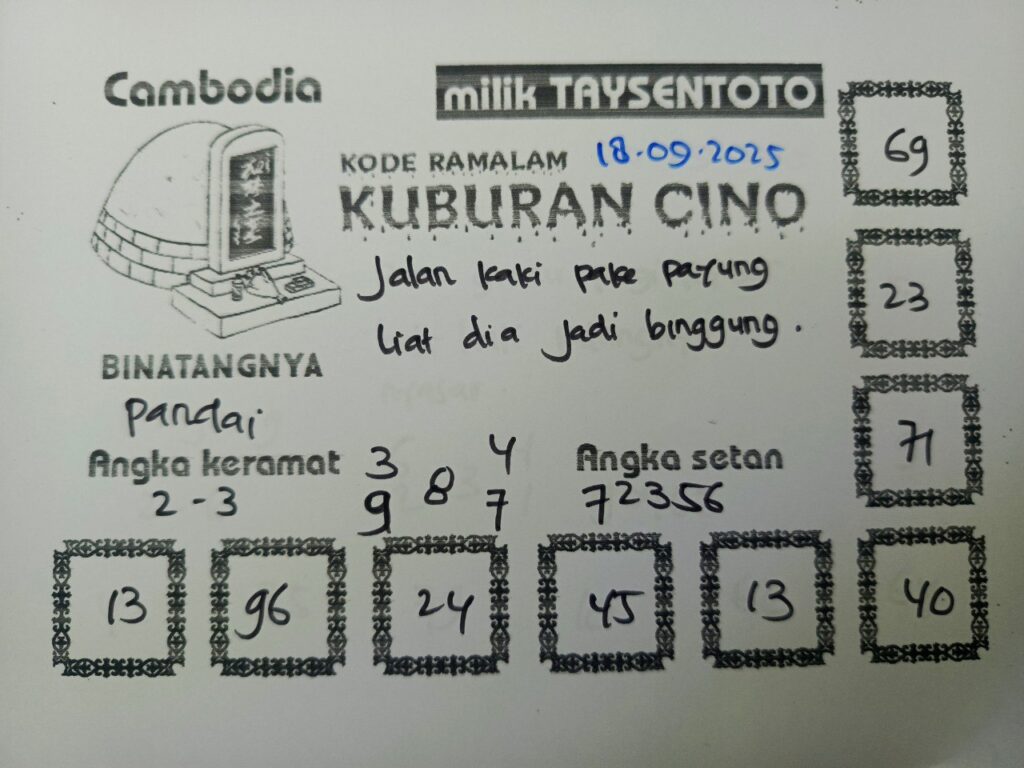 Cambodia
milik TAYSENTOTO
KODE RAMALAM 18.09.2025
KUBURAN CINO
Jalan kaki pake payung
liat dia jadi binggung.
BINATANGNYA
pandai
Angka keramat
2-3
3 4
8
9 7
Angka setan
72356
69
23
71
13 96 24 45 13 40